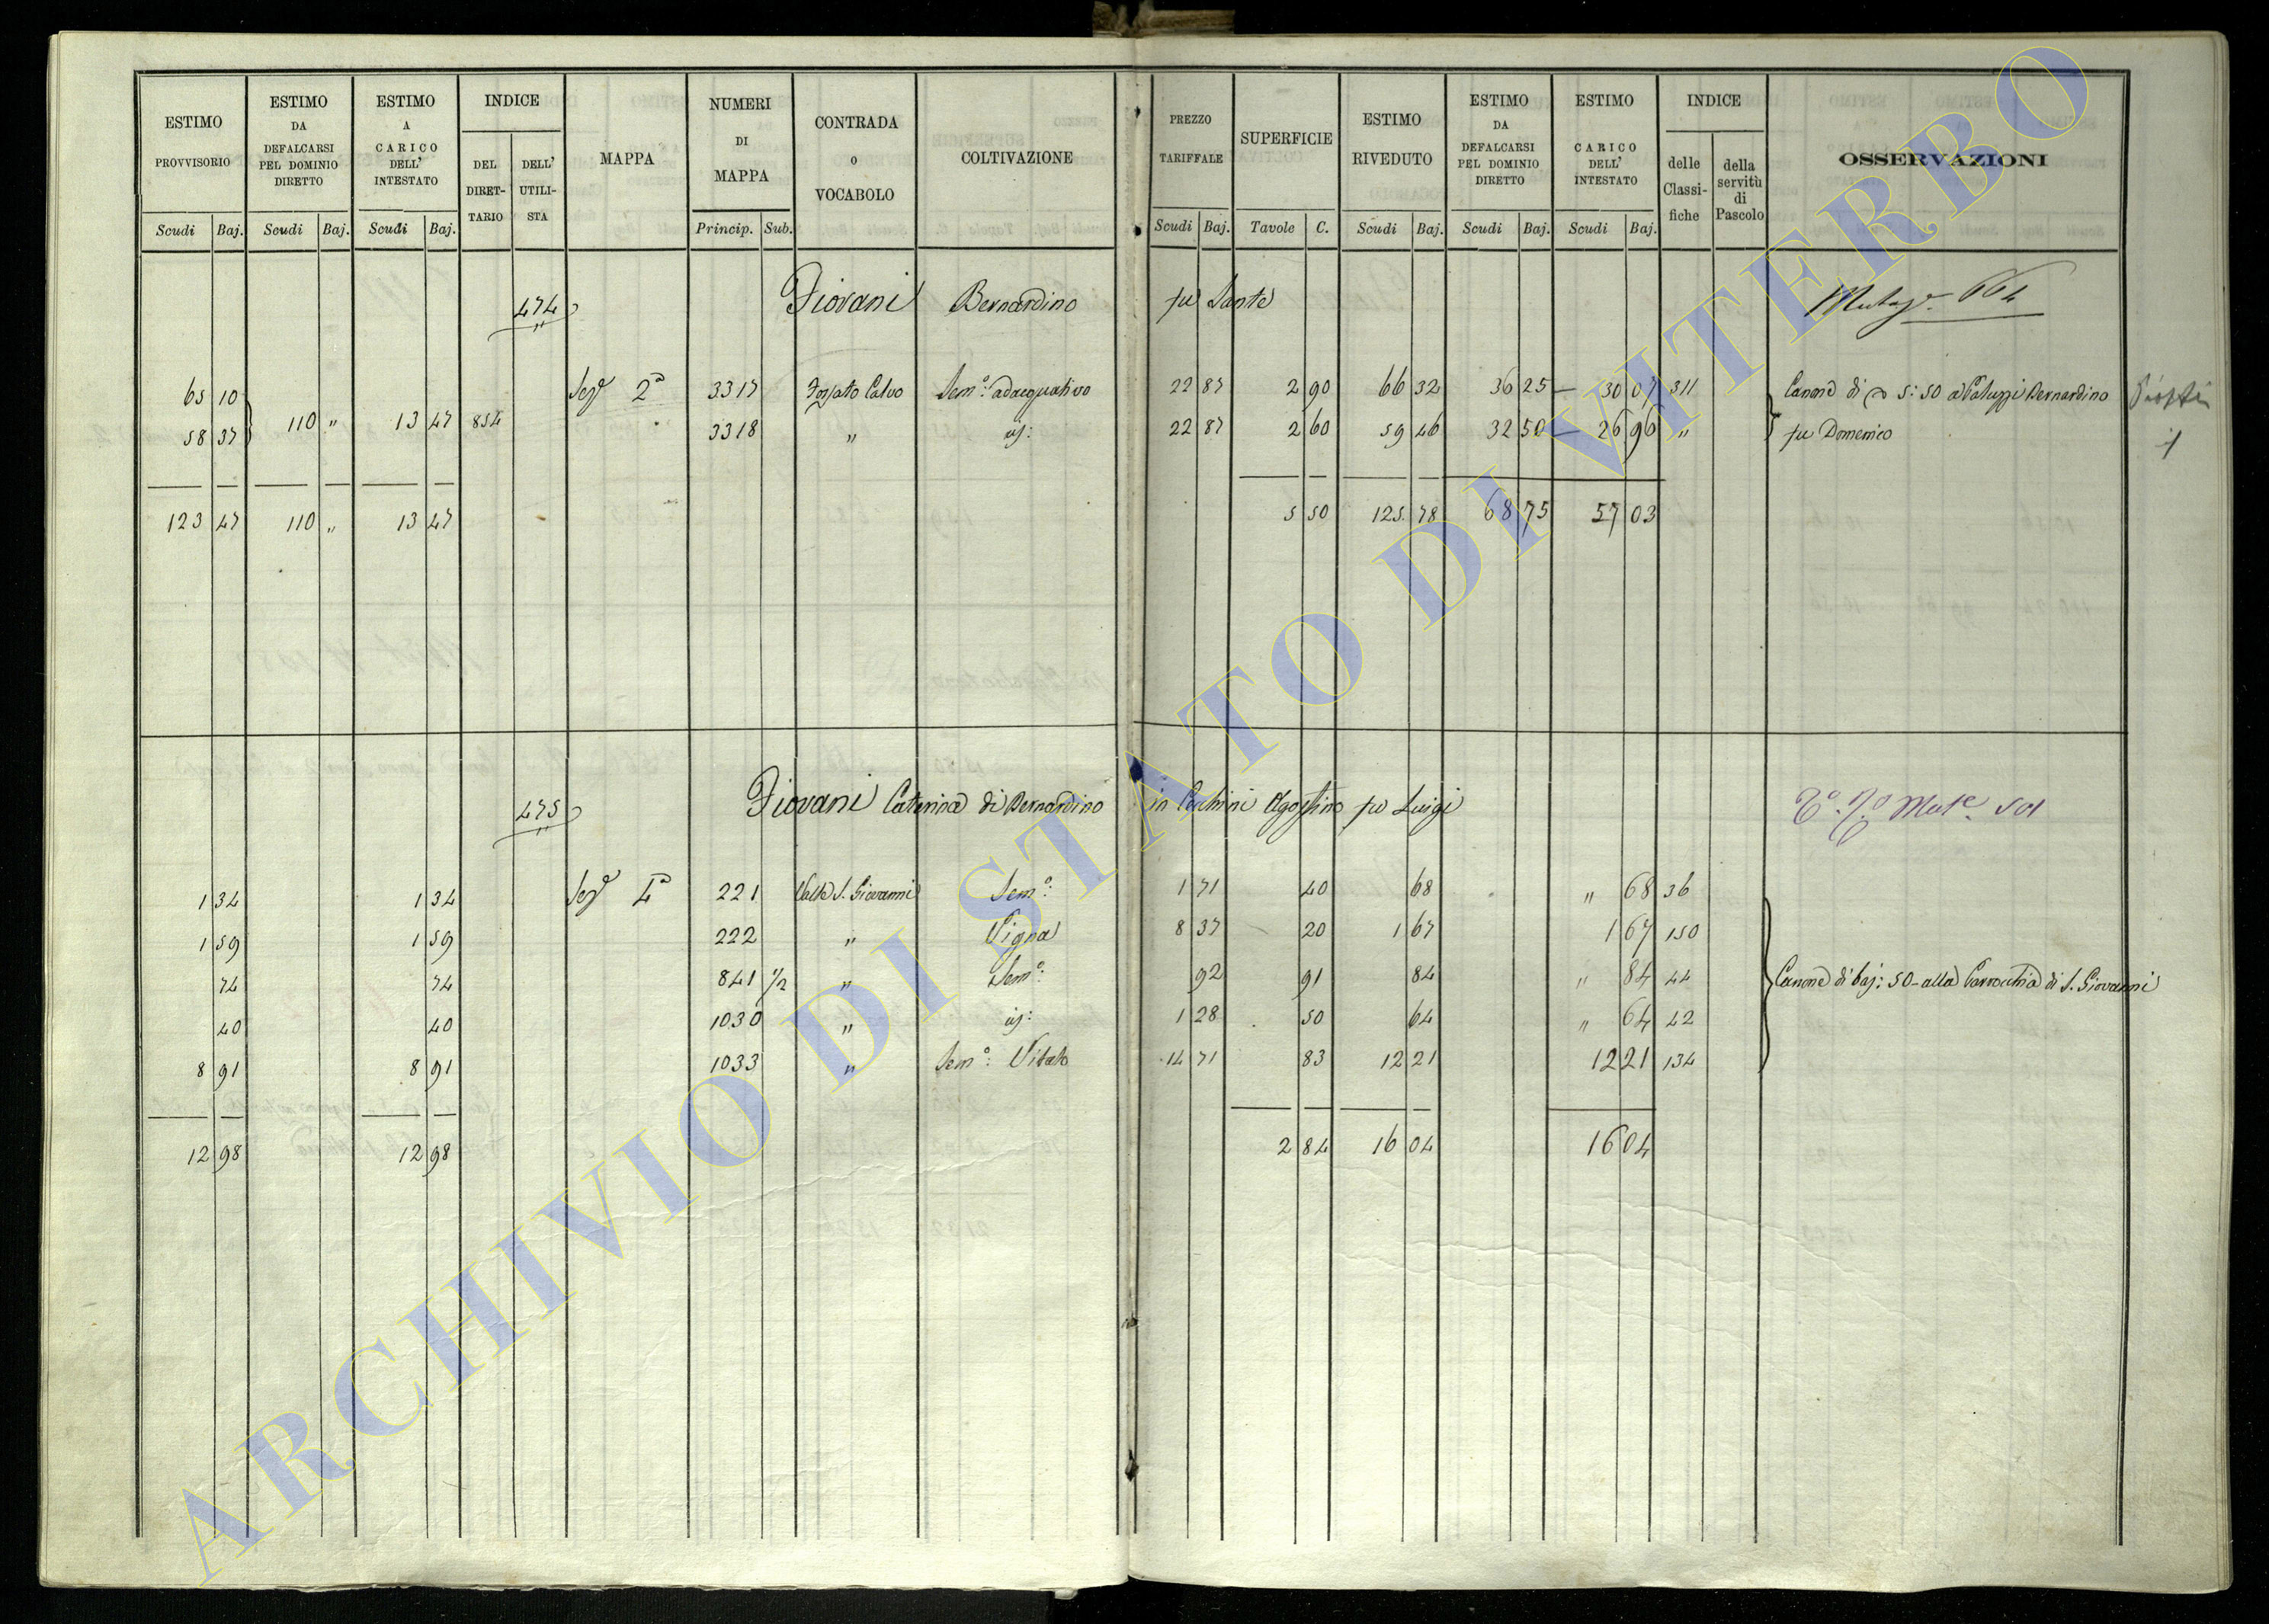 ESTIMO PROVVISORIO
Scudi Baj.
ESTIMO DA DEFALCARSI PEL DOMINIO DIRETTO
Scudi Baj.
ESTIMO A CARICO DELL' INTESTATO
Scudi Baj.
INDICE
DEL DIRET-TARIO
DELL' UTILI-STA
MAPPA
NUMERI DI MAPPA
Princip. Sub.
CONTRADA o VOCABOLO
COLTIVAZIONE
PREZZO TARIFFALE
Scudi Baj.
SUPERFICIE
Tavole C.
ESTIMO RIVEDUTO
Scudi Baj.
ESTIMO DA DEFALCARSI PEL DOMINIO DIRETTO
Scudi Baj.
ESTIMO A CARICO DELL' INTESTATO
Scudi Baj.
INDICE
delle Classi-fiche
della servitù di Pascolo
OSSERVAZIONI
474 Piovani Bernardino fu Sante 664
65 10 Sezе 2a 3317 Fossato Calvo Sem.o adacquativo 22 87 2 90 66 32 36 25 — 30 07 311 Canone di 5:50 a Paluzzi Bernardino
58 37 110 " 13 47 854 3318 " id: 22 87 2 60 59 46 32 50 — 26 96 " fu Domenico
123 47 110 " 13 47 5 50 125 78 68 75 57 03
475 Piovani Caterina di Bernardino in Cecchini Agostino fu Luigi
1 34 1 34 Sezе 4a 221 Valle S. Giovanni Sem.o: 1 71 40 68 " 68 36
1 59 1 59 222 " Vigna 8 37 20 1 67 1 67 150
74 74 841 1/2 " Sem.o: 92 91 84 " 84 44 Canone di baj: 50 alla Parrocchia di S. Giovanni
40 40 1030 " id: 1 28 50 64 " 64 42
8 91 8 91 1033 " Sem.o: Vitato 14 71 83 12 21 12 21 134
12 98 12 98 2 84 16 04 16 04
ARCHIVIO DI STATO DI VITERBO